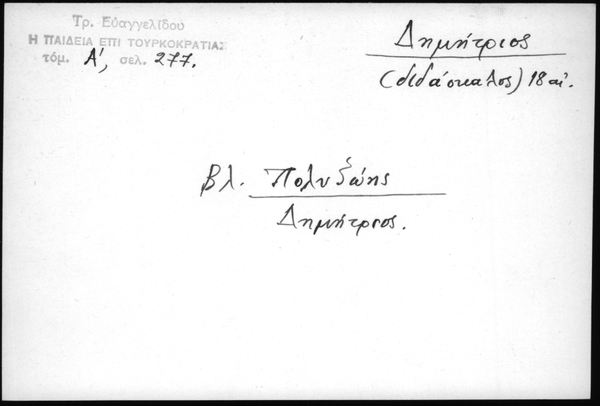 Τρ. Εὐαγγελίδου
Η ΠΑΙΔΕΙΑ ΕΠΙ ΤΟΥΡΚΟΚΡΑΤΙΑΣ
τόμ. Α', σελ. 277.
Δημήτριος
(διδάσκαλος) 18 αἰ.
βλ. Πολυζώης
Δημήτριος.